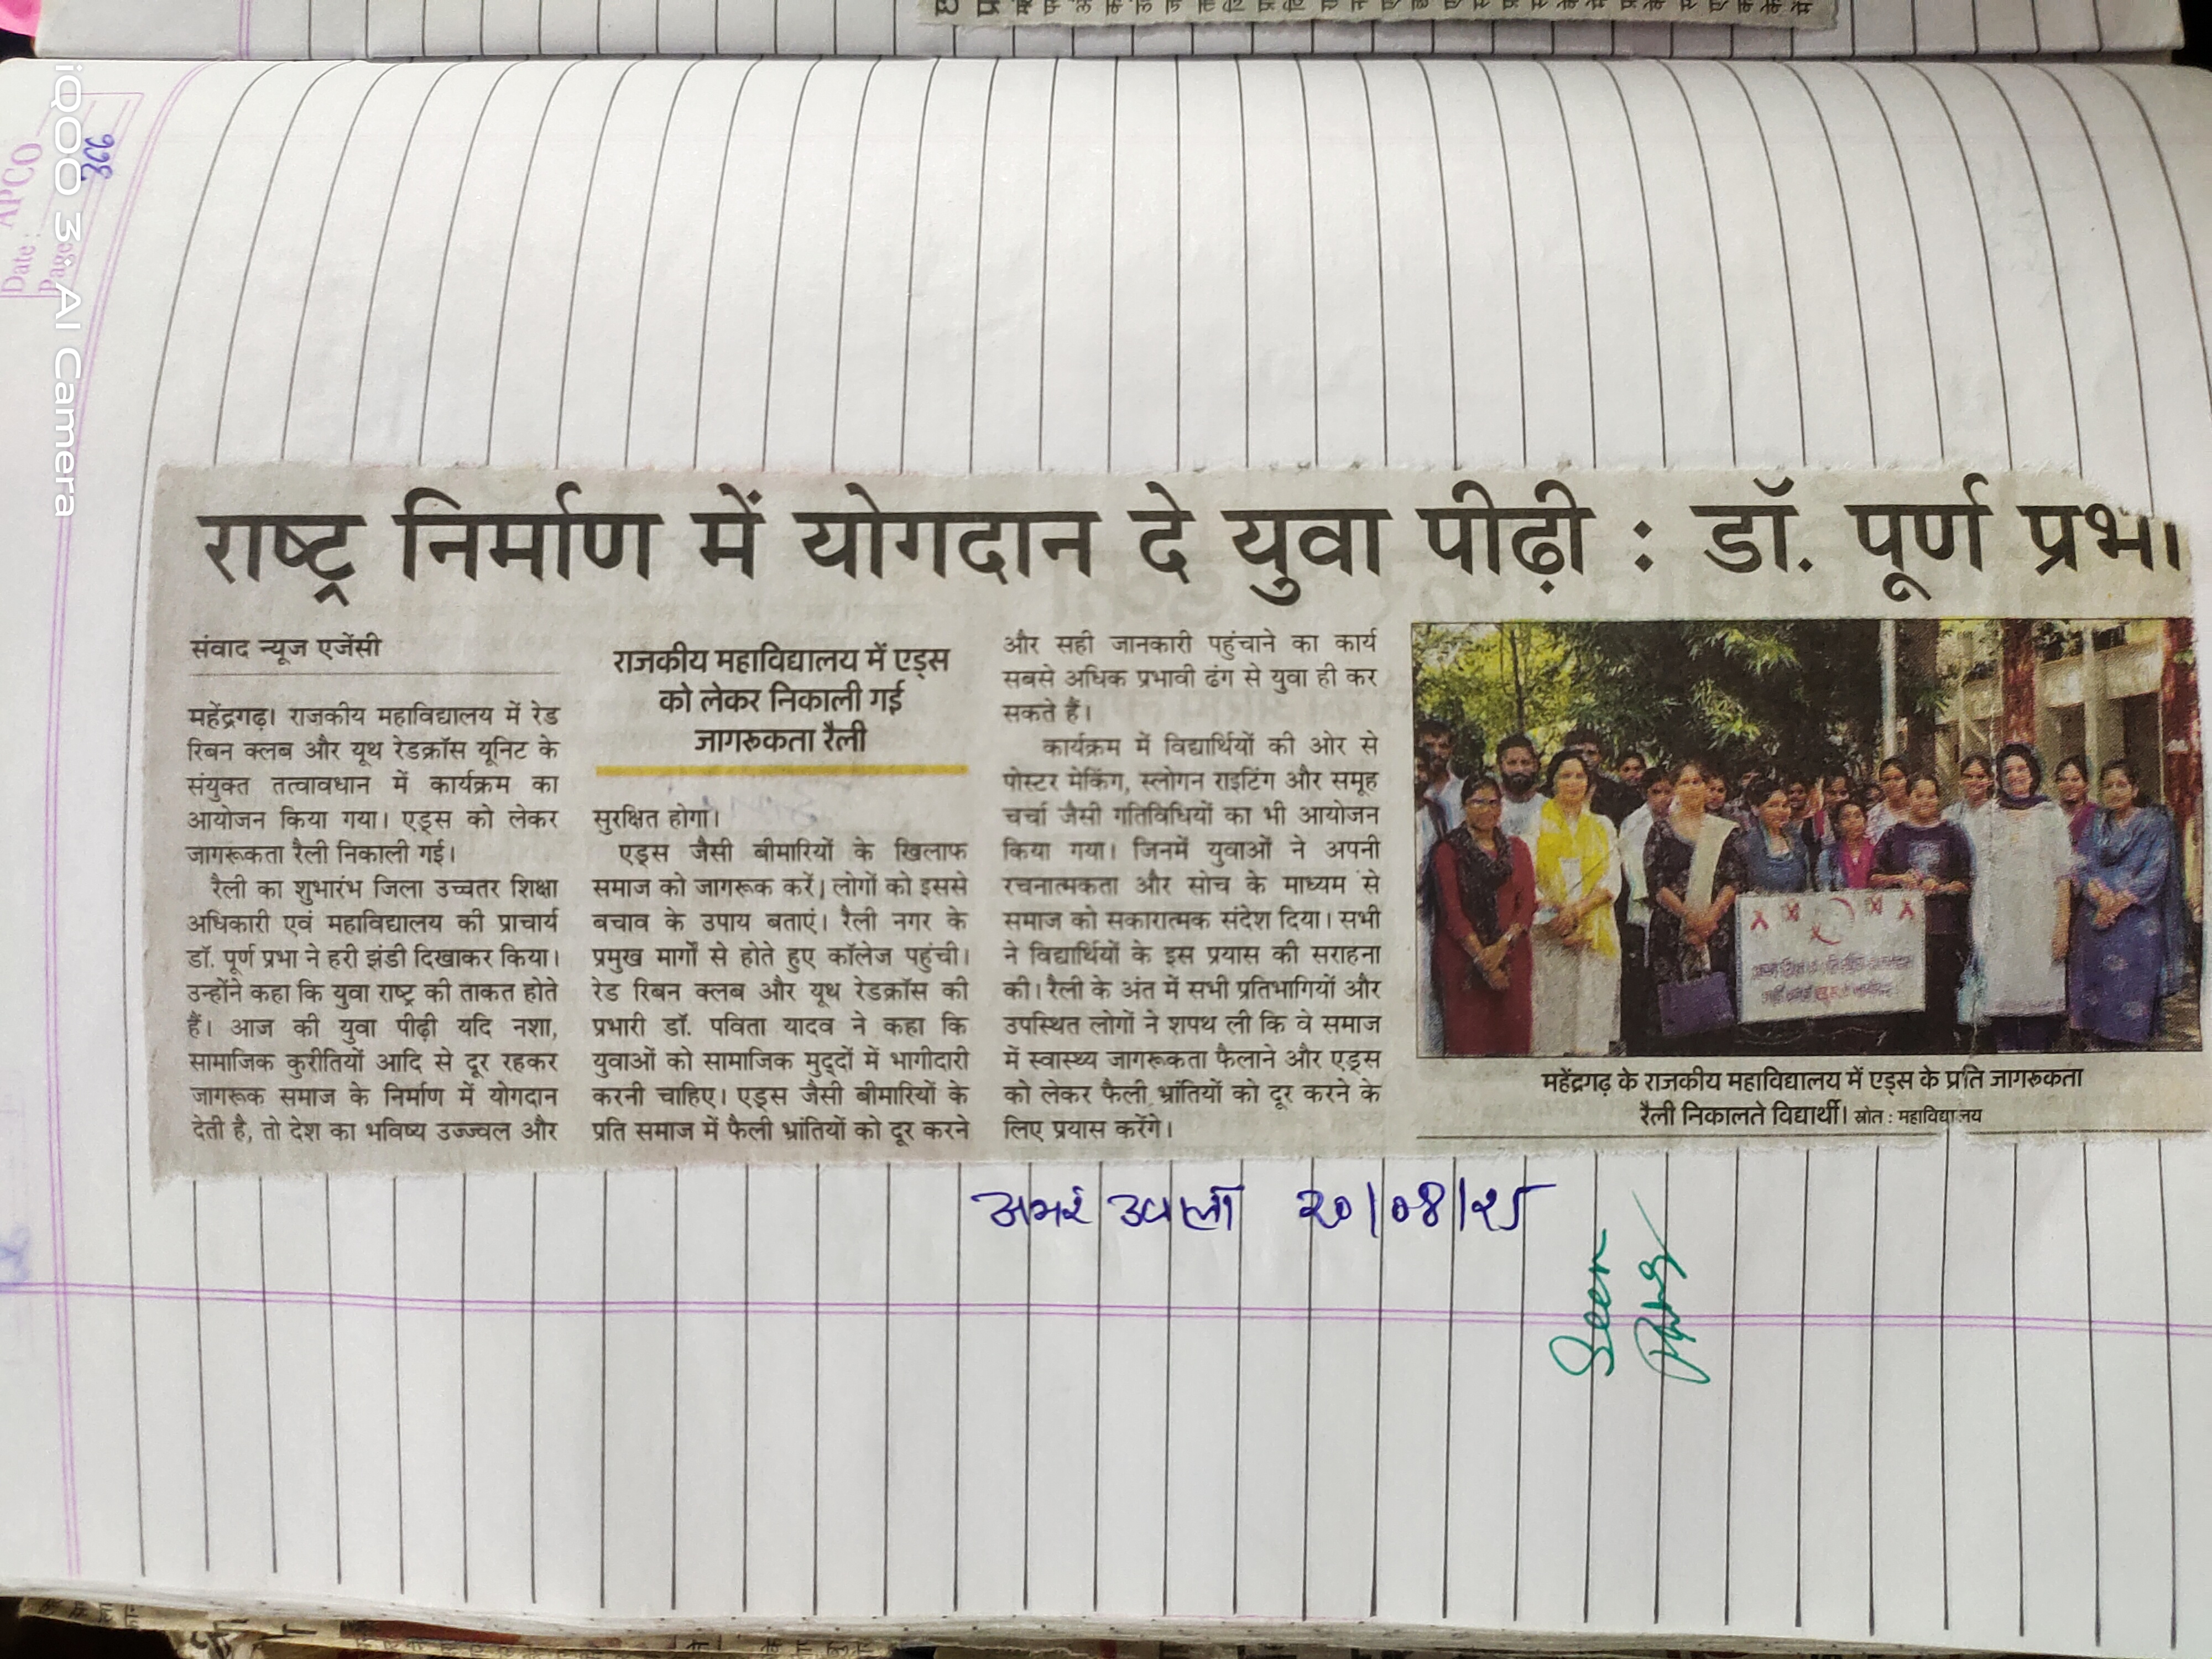 राष्ट्र निर्माण में योगदान दे युवा पीढ़ी : डॉ. पूर्ण प्रभा
संवाद न्यूज एजेंसी
महेंद्रगढ़। राजकीय महाविद्यालय में रेड
रिबन क्लब और यूथ रेडक्रॉस यूनिट के
संयुक्त तत्वावधान में कार्यक्रम का
आयोजन किया गया। एड्स को लेकर
जागरूकता रैली निकाली गई।
रैली का शुभारंभ जिला उच्चतर शिक्षा
अधिकारी एवं महाविद्यालय की प्राचार्य
डॉ. पूर्ण प्रभा ने हरी झंडी दिखाकर किया।
उन्होंने कहा कि युवा राष्ट्र की ताकत होते
हैं। आज की युवा पीढ़ी यदि नशा,
सामाजिक कुरीतियों आदि से दूर रहकर
जागरूक समाज के निर्माण में योगदान
देती है, तो देश का भविष्य उज्ज्वल और
राजकीय महाविद्यालय में एड्स
को लेकर निकाली गई
जागरूकता रैली
सुरक्षित होगा।
एड्स जैसी बीमारियों के खिलाफ
समाज को जागरूक करें। लोगों को इससे
बचाव के उपाय बताएं। रैली नगर के
प्रमुख मार्गों से होते हुए कॉलेज पहुंची।
रेड रिबन क्लब और यूथ रेडक्रॉस की
प्रभारी डॉ. पविता यादव ने कहा कि
युवाओं को सामाजिक मुद्दों में भागीदारी
करनी चाहिए। एड्स जैसी बीमारियों के
प्रति समाज में फैली भ्रांतियों को दूर करने
और सही जानकारी पहुंचाने का कार्य
सबसे अधिक प्रभावी ढंग से युवा ही कर
सकते हैं।
कार्यक्रम में विद्यार्थियों की ओर से
पोस्टर मेकिंग, स्लोगन राइटिंग और समूह
चर्चा जैसी गतिविधियों का भी आयोजन
किया गया। जिनमें युवाओं ने अपनी
रचनात्मकता और सोच के माध्यम से
समाज को सकारात्मक संदेश दिया। सभी
ने विद्यार्थियों के इस प्रयास की सराहना
की। रैली के अंत में सभी प्रतिभागियों और
उपस्थित लोगों ने शपथ ली कि वे समाज
में स्वास्थ्य जागरूकता फैलाने और एड्स
को लेकर फैली भ्रांतियों को दूर करने के
लिए प्रयास करेंगे।
महेंद्रगढ़ के राजकीय महाविद्यालय में एड्स के प्रति जागरूकता
रैली निकालते विद्यार्थी। स्रोत : महाविद्यालय
अमर उजाला २०/०४/२५
Seen
APCO
Date :
Page
iQOO 3 : AI Camera